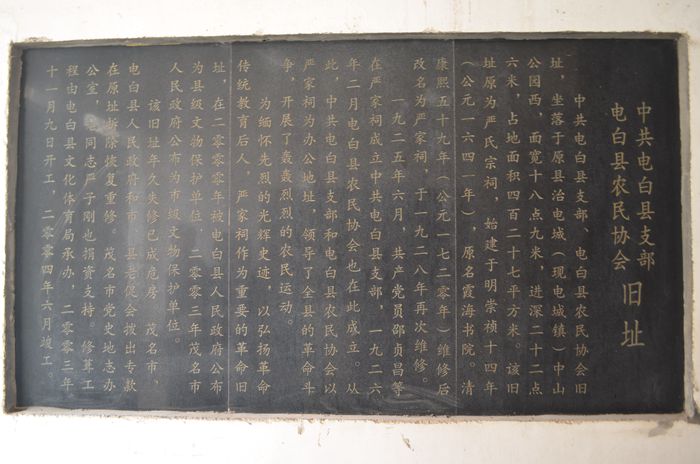 中共电白县支部
电白县农民协会
旧址
中共电白县支部、电白县农民协会旧
址，坐落于原县治电城（现电城镇）中山
公园西，面宽十八点九米，进深二十二点
六米，占地面积四百二十七平方米。该旧
址原为严氏宗祠，始建于明崇祯十四年
（公元一六四一年），原名霞海书院。清
康熙五十九年（公元一七二零年）维修后
改名为严家祠，于一九二八年再次维修。
一九二五年六月，共产党员邵贞昌等
在严家祠成立中共电白县支部，一九二六
年二月电白县农民协会也在此成立。从
此，中共电白县支部和电白县农民协会以
严家祠为办公地址，领导了全县的革命斗
争，开展了轰轰烈烈的农民运动。
为缅怀先烈的光辉史迹，以弘扬革命
传统教育后人，严家祠作为重要的革命旧
址，在二零零零年被电白县人民政府公布
为县级文物保护单位，二零零三年茂名市
人民政府公布为市级文物保护单位。
该旧址年久失修已成危房，茂名市、
电白县人民政府和市、县老促会拨出专款
在原址拆除恢复重修。茂名市党史地志办
公室，同志严子刚也捐资支持。修葺工
程由电白县文化体育局承办，二零零三年
十一月九日开工，二零零四年六月竣工。